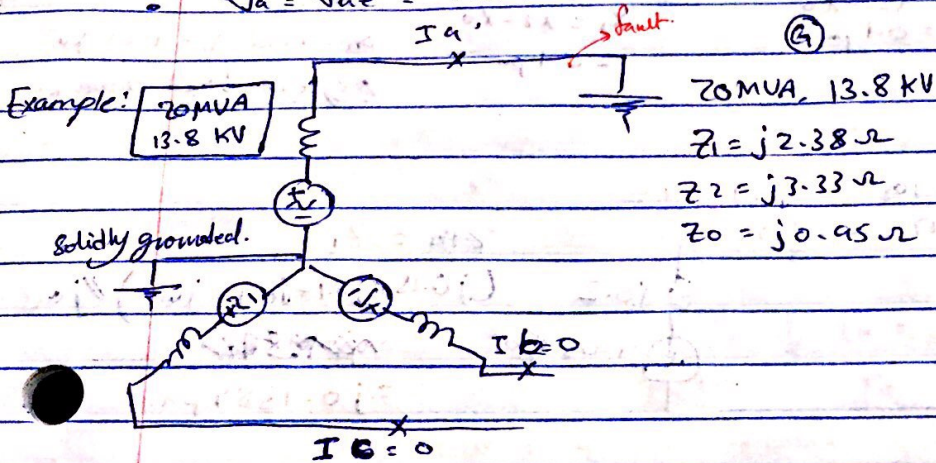 Va = Vae
Ia'
fault.
G
Example:
20MVA
13.8 KV
20MVA, 13.8 KV
Z1 = j2.38 Ω
Z2 = j3.33 Ω
Z0 = j0.95 Ω
solidly grounded.
Ib=0
Ic=0